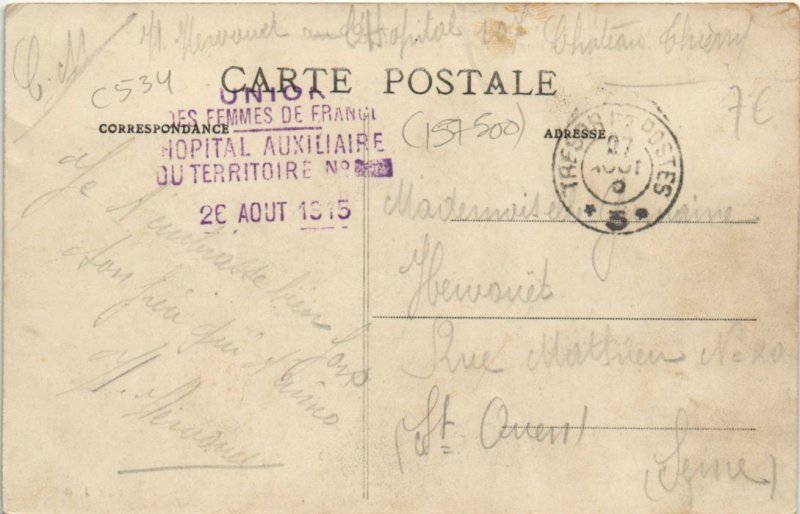 H. Hervouet Hopital 107 Château Thierry
CARTE POSTALE
C534
7€
UNION
DES FEMMES DE FRANCE
CORRESPONDANCE
(157500)
ADRESSE
HOPITAL AUXILIAIRE
DU TERRITOIRE No
26 AOUT 1915
TRESOR ET POSTES
27
AOUT
5
* 3 *
Je t'embrasse bien fort
ton père qui t'aime
H. Hervouet
Mademoiselle
Hervouët
Rue Mathieu No 20
(St Ouen)
(Seine)